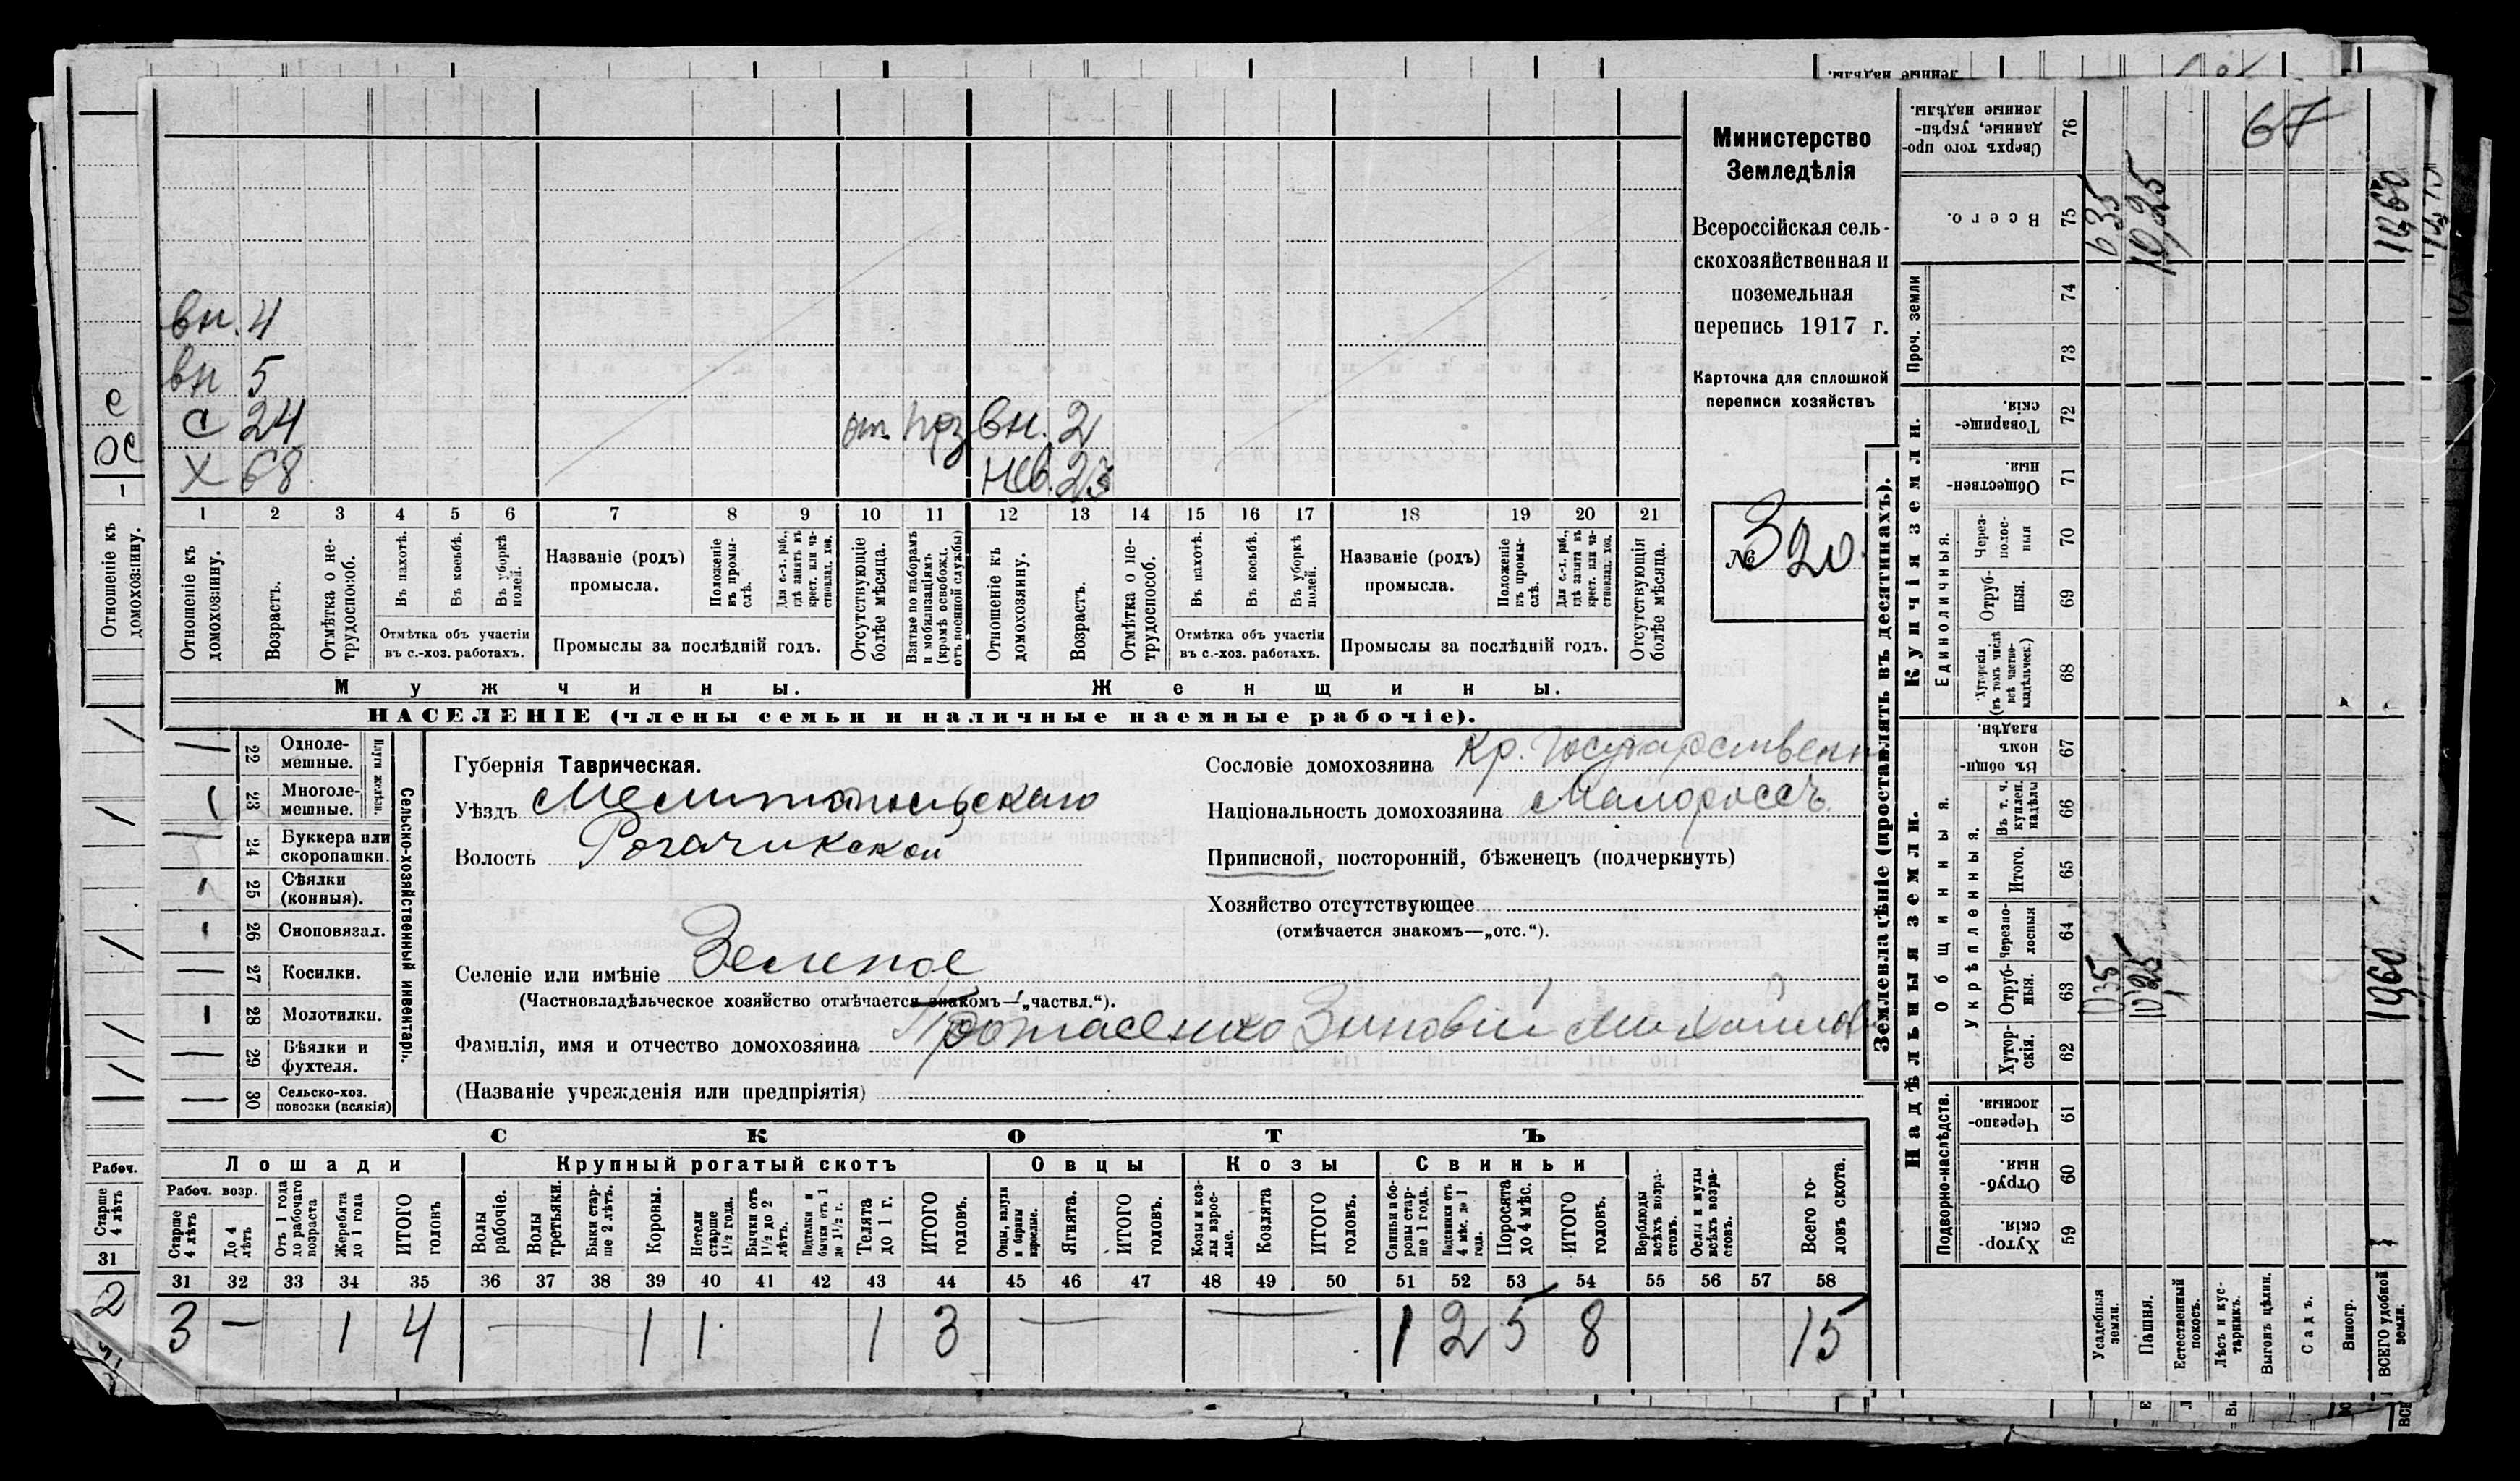 Министерство
Земледѣлія
Всероссійская сель-
скохозяйственная и
поземельная
перепись 1917 г.
Карточка для сплошной
переписи хозяйствъ
№ 320
67
вн. 4
вн 5
С 24 от. вн. 2
Х 68 нев. 23
1 2 3 4 5 6 7 8 9 10 11 12 13 14 15 16 17 18 19 20 21
Отношеніе къ домохозяину.
Возрастъ.
Отмѣтка о не-трудоспособ.
Въ пахотѣ.
Въ косьбѣ.
Въ уборкѣ полей.
Отмѣтка объ участіи
въ с.-хоз. работахъ.
Названіе (родъ)
промысла.
Положеніе въ промы-слѣ.
Для с.-х. раб., гдѣ занятъ въ крест. или ча-ствовлад. хоз.
Промыслы за послѣдній годъ.
Отсутствующіе болѣе мѣсяца.
Взятые по наборамъ и мобилизаціямъ (кромѣ освобожд. отъ военной службы)
Отношеніе къ домохозяину.
Возрастъ.
Отмѣтка о не-трудоспособ.
Въ пахотѣ.
Въ косьбѣ.
Въ уборкѣ полей.
Отмѣтка объ участіи
въ с.-хоз. работахъ.
Названіе (родъ)
промысла.
Положеніе въ промы-слѣ.
Для с.-х. раб., гдѣ занята въ крест. или ча-ствовлад. хоз.
Промыслы за послѣдній годъ.
Отсутствующія болѣе мѣсяца.
Мужчины. Женщины.
НАСЕЛЕНІЕ (члены семьи и наличные наемные рабочіе).
Сельско-хозяйственный инвентарь.
Плуги желѣзн.
22 Одноле-мешные.
23 Многоле-мешные.
24 Буккера или скоропашки.
25 Сѣялки (конныя).
26 Сноповязал.
27 Косилки.
28 Молотилки.
29 Вѣялки и фухтеля.
30 Сельско-хоз. повозки (всякія)
Губернія Таврическая.
Уѣздъ Мелитопольскаго
Волость Рогачикской
Селеніе или имѣніе Зеленое
(Частновладѣльческое хозяйство отмѣчается знакомъ—„частвл.“).
Фамилія, имя и отчество домохозяина Протасенко Зиновій Михайлов
(Названіе учрежденія или предпріятія)
Сословіе домохозяина Кр. Государственн
Національность домохозяина Малороссъ.
Приписной, посторонній, бѣженецъ (подчеркнуть)
Хозяйство отсутствующее
(отмѣчается знакомъ—„отс.“).
СКОТЪ
Лошади Крупный рогатый скотъ Овцы Козы Свиньи
Рабоч. возр.
Старше 4 лѣтъ
До 4 лѣтъ
Отъ 1 года до рабочаго возраста
Жеребята до 1 года
ИТОГО головъ
Волы рабочіе.
Волы третьяки.
Быки стар-ше 2 лѣтъ.
Коровы.
Нетели старше 1½ года.
Бычки отъ 1½ до 2 лѣтъ.
Подтелки и бычки отъ 1 до 1½ г.
Телята до 1 г.
ИТОГО головъ.
Овцы, валухи и бараны взрослые.
Ягнята.
ИТОГО головъ.
Козы и коз-лы взрос-лые.
Козлята
ИТОГО головъ.
Свиньи и бо-ровы стар-ше 1 года.
Подсвинки отъ 4 мѣс. до 1 года.
Поросята до 4 мѣс.
ИТОГО головъ.
Верблюды всѣхъ возра-стовъ.
Ослы и мулы всѣхъ возра-стовъ.
Всего го-ловъ скота.
31 32 33 34 35 36 37 38 39 40 41 42 43 44 45 46 47 48 49 50 51 52 53 54 55 56 57 58
3 — 1 4 — 1 1 1 3 — — 1 2 5 8 15
Землевладѣніе (проставлять въ десятинахъ).
Надѣльныя земли. Купчія земли. Проч. земли
Подворно-наслѣдств.
Общинныя.
Укрѣпленныя.
Единоличныя.
59 Хутор-скія.
60 Отруб-ныя.
61 Черезпо-лосныя.
62 Хутор-скія.
63 Отруб-ныя.
64 Черезпо-лосныя
65 Итого.
66 Въ т. ч. куплен. надѣлы
67 Въ общи-номъ владѣн.
68 Хуторскія (въ томъ числѣ всѣ частно-владѣльческ.)
69 Отруб-ныя.
70 Через-полос-ныя
71 Обществен-ныя.
72 Товарище-скія.
73
74
75 Всего.
76 Сверхъ того про-данные, укрѣп-ленные надѣлы.
Усадебныя земли.
Пашня.
Естественный покосъ.
Лѣсъ и кус-тарникъ.
Выгонъ цѣлин.
Садъ.
Виногр.
ВСЕГО удобной земли.
Отношеніе къ домохозяину.
Рабоч.
Старше 4 лѣтъ
31
2